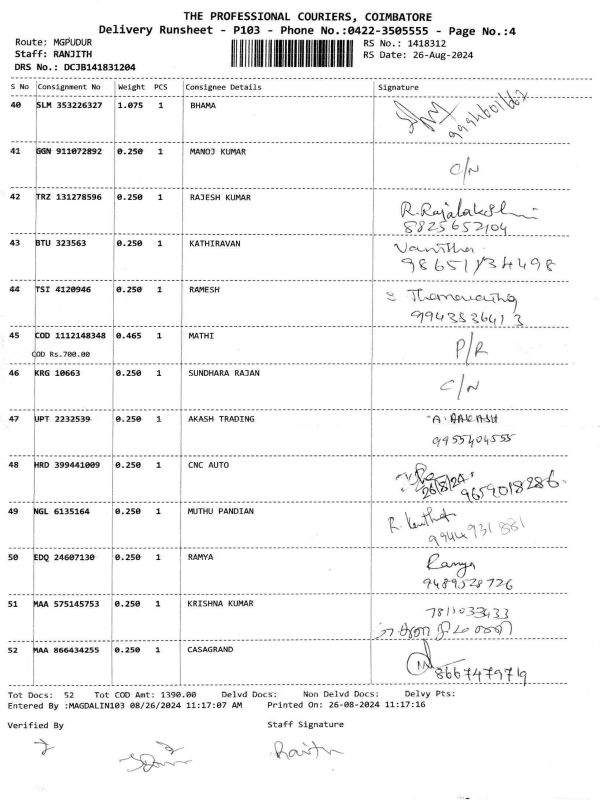 THE PROFESSIONAL COURIERS, COIMBATORE
Delivery Runsheet - P103 - Phone No.:0422-3505555 - Page No.:4
Route: MGPUDUR RS No.: 1418312
Staff: RANJITH RS Date: 26-Aug-2024
DRS No.: DCJB141831204
S No Consignment No Weight PCS Consignee Details Signature
40 SLM 353226327 1.075 1 BHAMA 9994601662
41 GGN 911072892 0.250 1 MANOJ KUMAR C/N
42 TRZ 131278596 0.250 1 RAJESH KUMAR R. Rajalakshmi
8825652104
43 BTU 323563 0.250 1 KATHIRAVAN Vanitha
98651134498
44 TSI 4120946 0.250 1 RAMESH
9943836413
45 COD 1112148348 0.465 1 MATHI P/R
COD Rs.700.00
46 KRG 10663 0.250 1 SUNDHARA RAJAN C/N
47 UPT 2232539 0.250 1 AKASH TRADING A. AAKASH
9955404555
48 HRD 399441009 0.250 1 CNC AUTO 26/8/24 9659018286
49 NGL 6135164 0.250 1 MUTHU PANDIAN R.
9944931881
50 EDQ 24607130 0.250 1 RAMYA Ramya
9489528726
51 MAA 575145753 0.250 1 KRISHNA KUMAR 7811033433
52 MAA 866434255 0.250 1 CASAGRAND 8667479719
Tot Docs: 52 Tot COD Amt: 1390.00 Delvd Docs: Non Delvd Docs: Delvy Pts:
Entered By :MAGDALIN103 08/26/2024 11:17:07 AM Printed On: 26-08-2024 11:17:16
Verified By Staff Signature